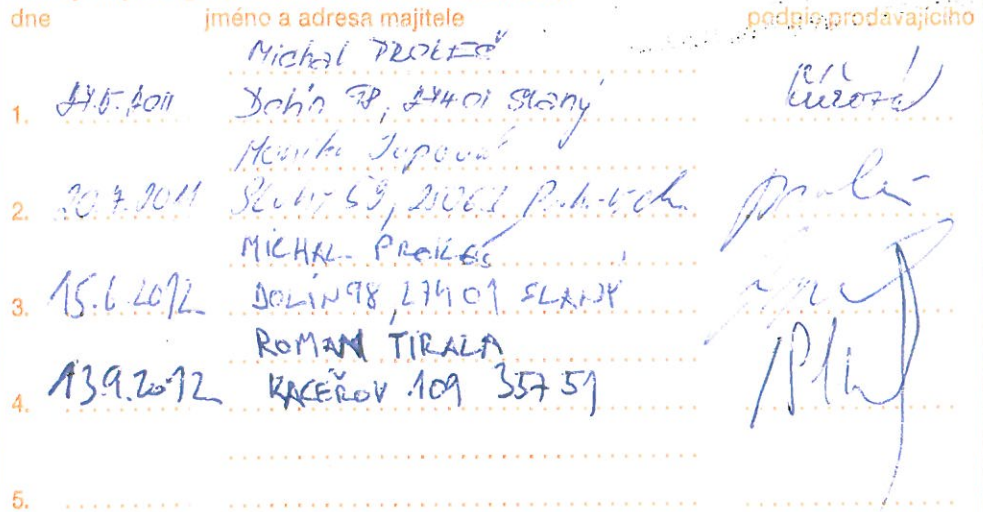 dne jméno a adresa majitele podpis prodávajícího
Michal PROKEŠ
1. 27.5.2011 Dolín 98, 27401 Slaný
Monika
2. 20.7.2011 59,
MICHAL PROKEŠ
3. 15.6.2012 DOLÍN 98, 27401 SLANÝ
ROMAN TIRALA
4. 13.9.2012 KACEŘOV 109 35751
5.